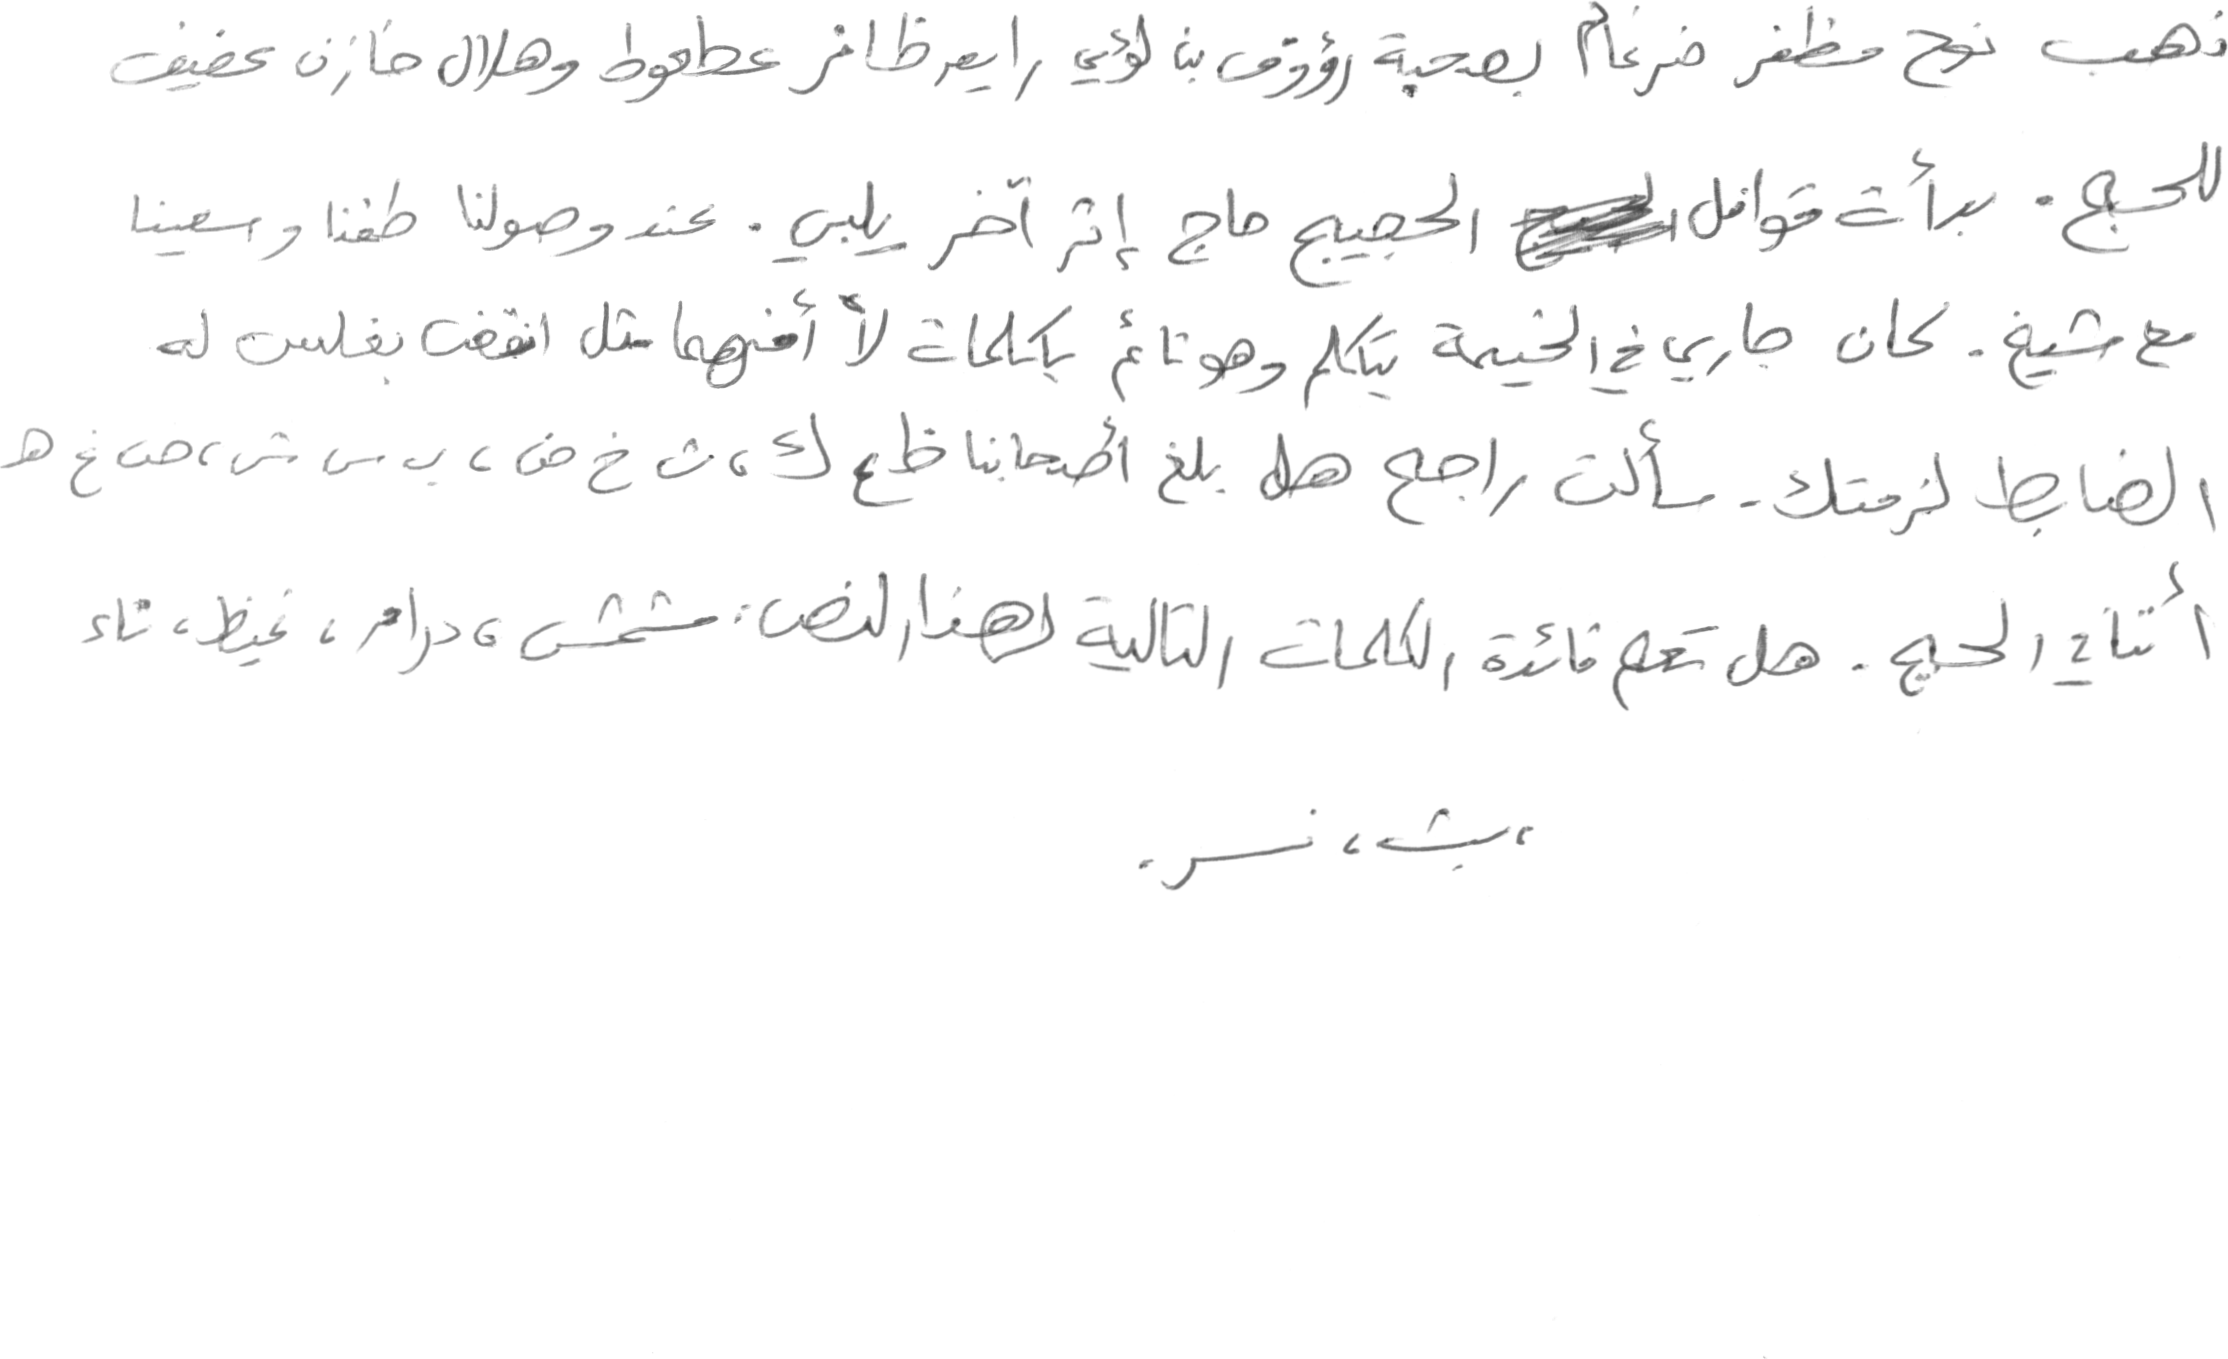 ذهب نوح مظفر ضرغام بصحبة رؤوف بن لؤي رايس ظافر عطعوط وهلال خازن عفيف
للحج. بدأت قوافل الحجيج حاج إثر آخر يلبي. عند وصولنا طفنا وسعينا
مع شيخ. كان جاري في الخيمة يتكلم وهو نائم بكلمات لا أفهمها مثل انقضت بغلس له
الضابط لزمتك. سألت راجح هل بلغ أصحابنا ظ ع ك، ث خ ض، ب س ش، ص غ ه
أثناء الحج. هل تعلم فائدة الكلمات التالية لهذا النص: مشمش، درام، غيظ، تاء
، بث، نسر.